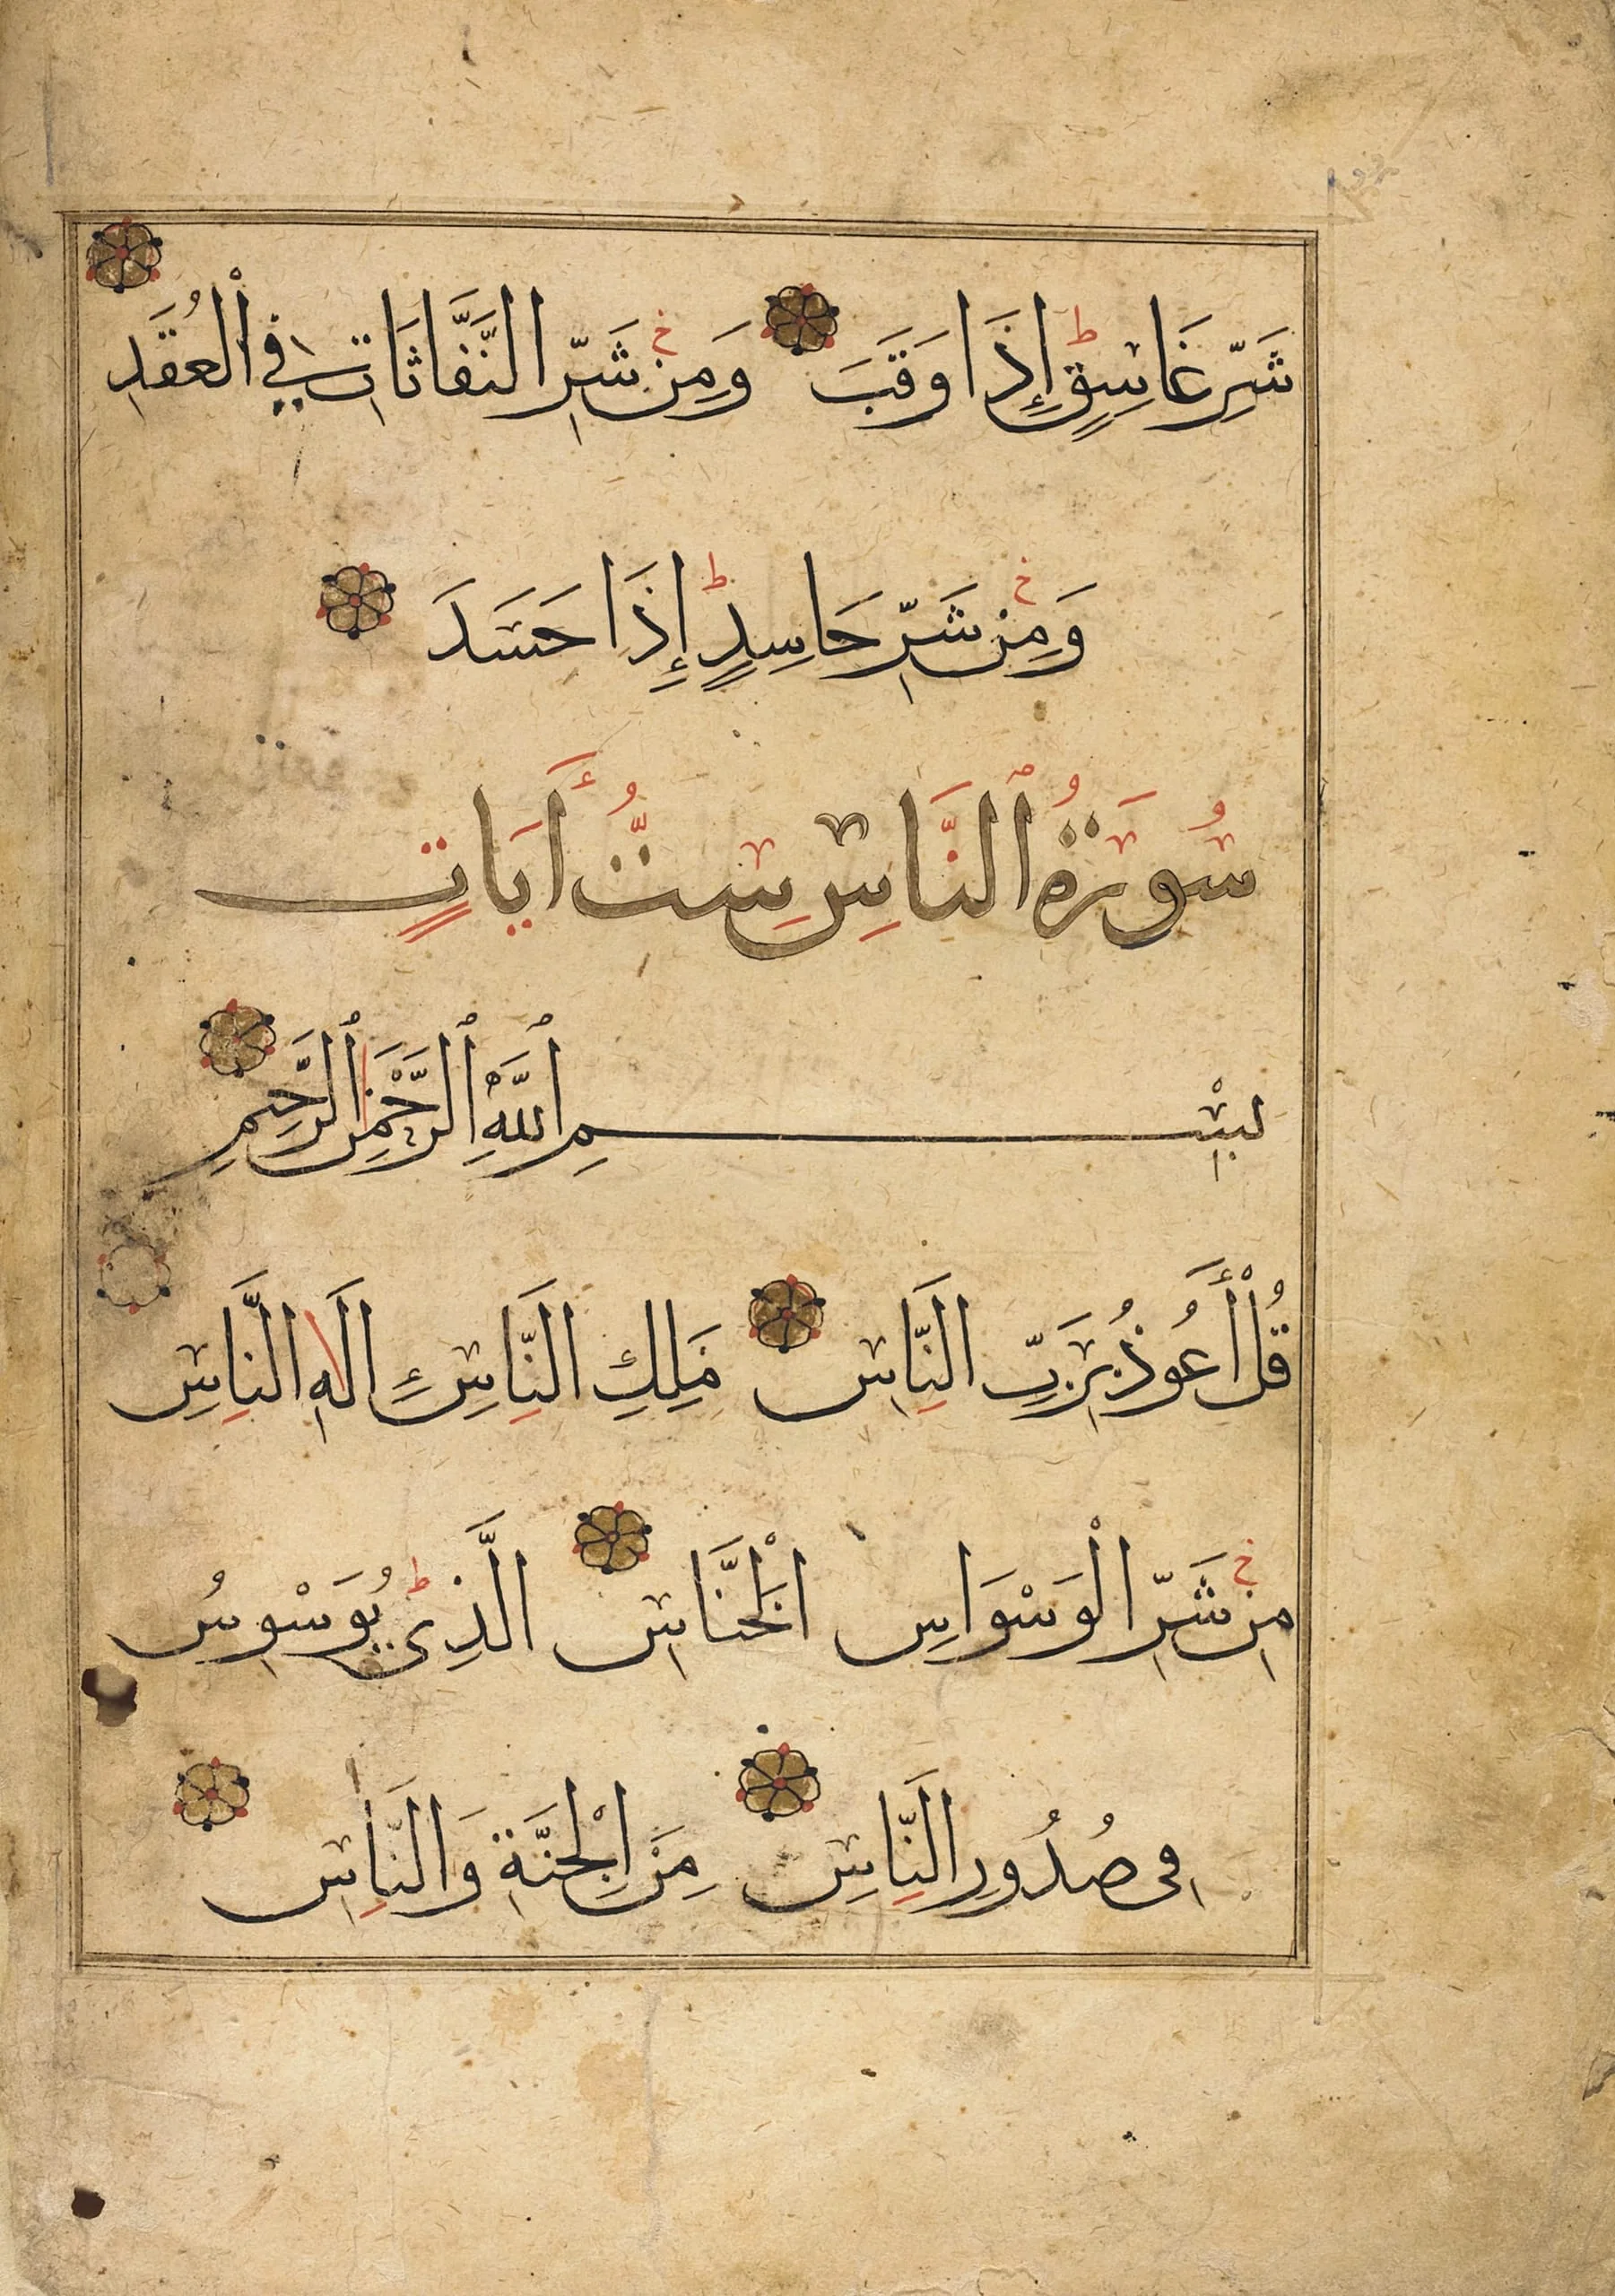 شَرِّ غَاسِقٍ إِذَا وَقَبَ وَمِن شَرِّ النَّفَّاثَاتِ فِي الْعُقَدِ
وَمِن شَرِّ حَاسِدٍ إِذَا حَسَدَ
سُورَةُ ٱلنَّاسِ سِتُّ أَيَاتٍ
بِسْمِ ٱللَّهِ ٱلرَّحْمَٰنِ ٱلرَّحِيمِ
قُلْ أَعُوذُ بِرَبِّ النَّاسِ مَلِكِ النَّاسِ إِلَٰهِ النَّاسِ
مِن شَرِّ الْوَسْوَاسِ الْخَنَّاسِ الَّذِى يُوَسْوِسُ
فِى صُدُورِ النَّاسِ مِنَ الْجِنَّةِ وَالنَّاسِ